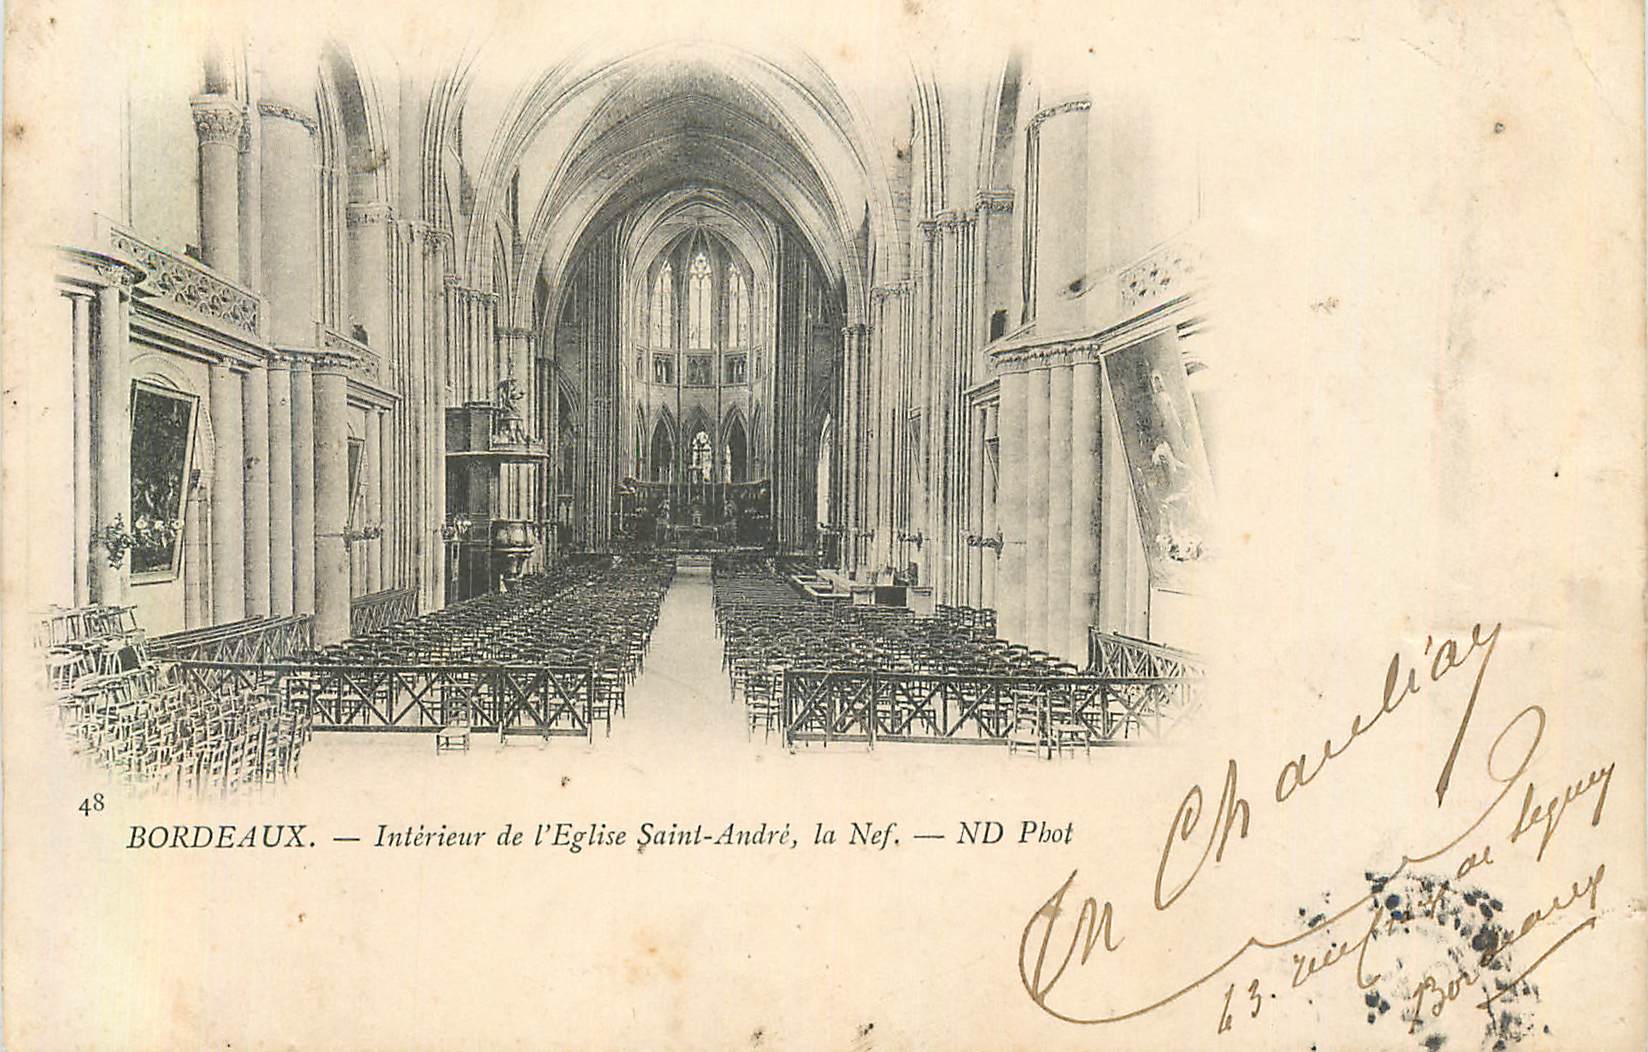 48
BORDEAUX. — Intérieur de l'Eglise Saint-André, la Nef. — ND Phot
43. rue de Seguey
Bordeaux